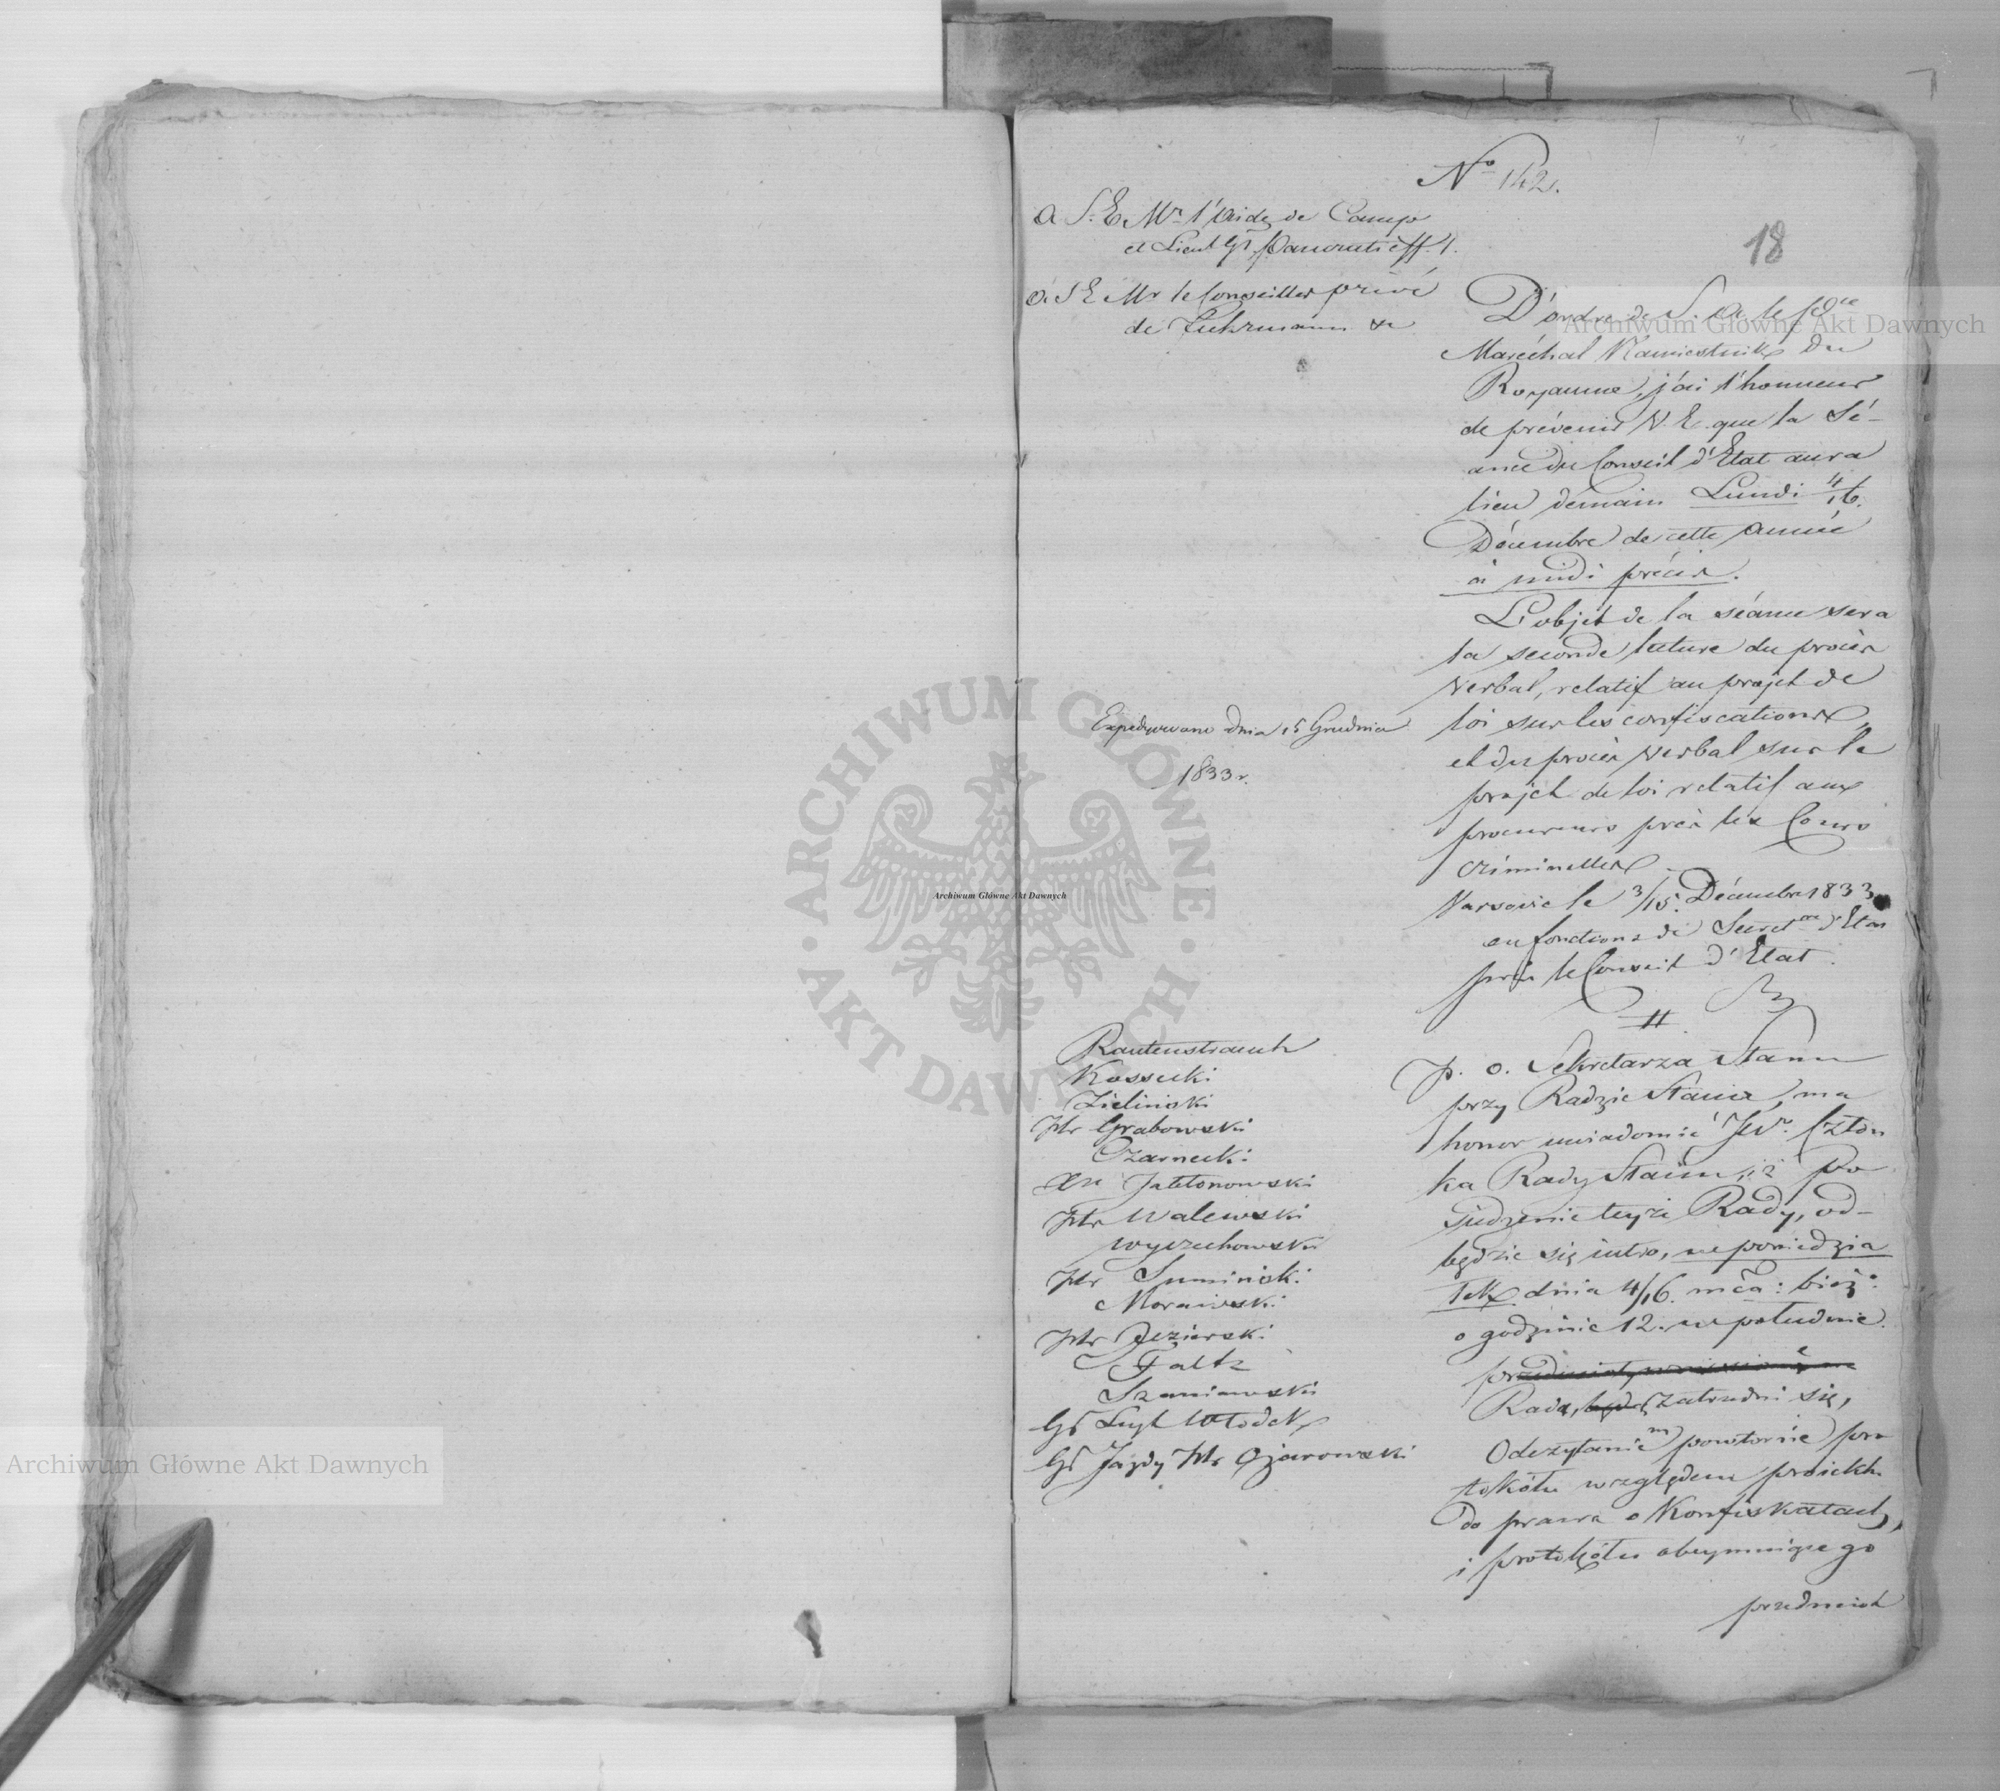 No 142.
18
a S. E. Mr l'Aide de Camp
et Lieut Gl Pancratieff 1.
à S E Mr le Conseiller privé
de Fuhrmann &
D'ordre de S. A. le
Maréchal Namiestnik du
Royaume, j'ai l'honneur
de prévenir V. E. que la Sé-
ance du Conseil d'Etat aura
lieu demain Lundi 4/16.
Décembre de cette année
à midi précis.
L'objet de la séance sera
la seconde lecture du procès
verbal, relatif au projet de
loi sur les confiscations
et du procès verbal sur le
projet de loi relatif aux
procureurs près les Cours
criminelles
Varsovie le 3/15. Décembre 1833
en fonctions de Secretre d'Etat
près le Conseil d'Etat.
Expedyowano dnia 15 Grudnia
1833 r.
Rautenstrauch
Kossecki
Zieliński
Hr Grabowski
Czarnecki
Xże Jabłonowski
Hr Walewski
Wyczechowski
Hr Sumiński
Morawski
Hr Jezierski
Faltz
Szaniawski
Gł Lejt Włodek
Gł Jazdy Hr Ożarowski
p. o. Sekretarza Stanu
przy Radzie Stanu, ma
honor uwiadomić JW. Człon
ka Rady Stanu, iż po
siedzenie teyże Rady, od-
będzie się iutro, w poniedzia
łek dnia 4/16. mca: bież:
o godzinie 12. w południe.
Rada, zatrudni się,
Odczytaniem powtornie pro
tokółu względem proiektu
do prawa o Konfiskatach,
i protokółu obeymuiącego
przedmiot
Archiwum Główne Akt Dawnych
ARCHIWUM GŁÓWNE AKT DAWNYCH
Archiwum Główne Akt Dawnych
Archiwum Główne Akt Dawnych